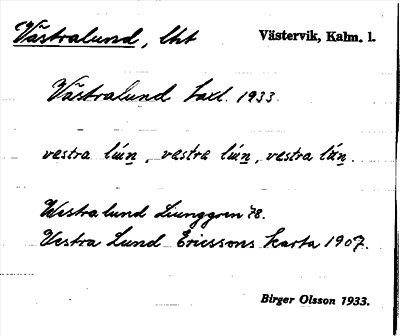 Västralund, lht Västervik, Kalm. l.
Västralund Taxl. 1933.
vestra lún, vestra lún, vestra lún.
Westralund Ljunggren 78.
Vestra Lund Ericssons karta 1907.
Birger Olsson 1933.